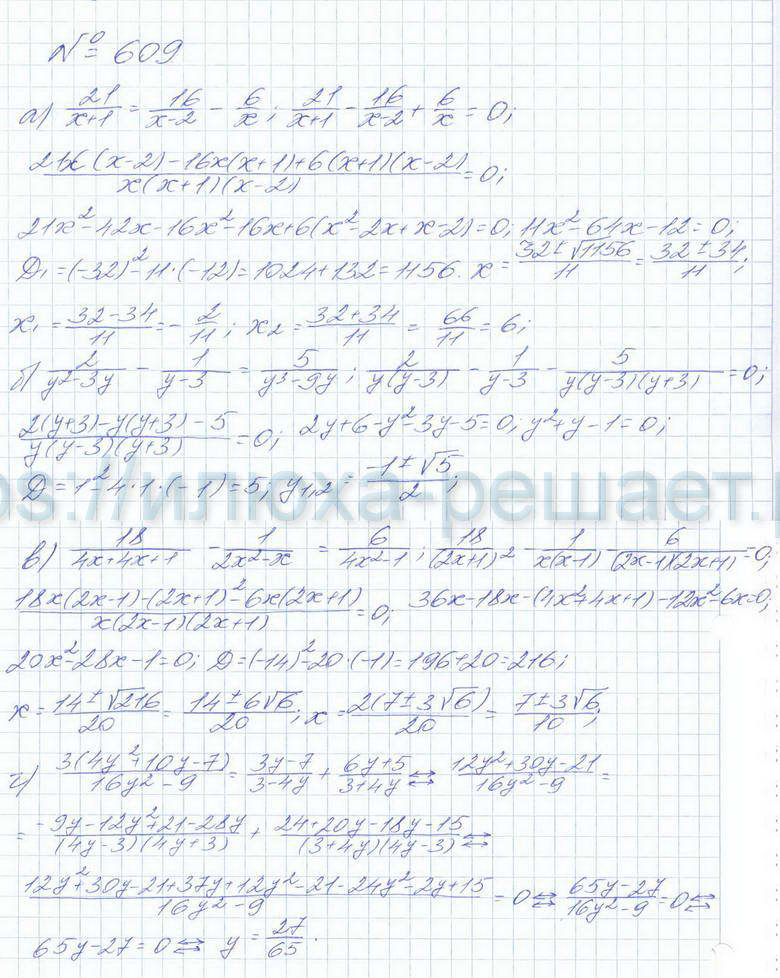 № 609
а) 21/(x+1) = 16/(x-2) - 6/x; 21/(x+1) - 16/(x-2) + 6/x = 0;
(21x(x-2)-16x(x+1)+6(x+1)(x-2))/(x(x+1)(x-2)) = 0;
21x²-42x-16x²-16x+6(x²-2x+x-2)=0; 11x²-64x-12=0;
D₁=(-32)²-11·(-12)=1024+132=1156. x=(32±√1156)/11=(32±34)/11;
x₁=(32-34)/11=-2/11; x₂=(32+34)/11=66/11=6;
б) 2/(y²-3y) - 1/(y-3) = 5/(y³-9y); 2/(y(y-3)) - 1/(y-3) - 5/(y(y-3)(y+3)) =0;
(2(y+3)-y(y+3)-5)/(y(y-3)(y+3)) =0; 2y+6-y²-3y-5=0; y²+y-1=0;
D=1²-4·1·(-1)=5; y₁,₂=(-1±√5)/2;
ps://илюха-решает.р
в) 18/(4x+4x+1) - 1/(2x²-x) = 6/(4x²-1); 18/(2x+1)² - 1/(x(x-1)) - 6/((2x-1)(2x+1)) =0;
(18x(2x-1)-(2x+1)²-6x(2x+1))/(x(2x-1)(2x+1)) =0; 36x-18x-(4x²+4x+1)-12x²-6x=0;
20x²-28x-1=0; D=(-14)²-20·(-1)=196+20=216;
x=(14±√216)/20=(14±6√6)/20; x=2(7±3√6)/20=(7±3√6)/10;
г) 3(4y²+10y-7)/(16y²-9) = (3y-7)/(3-4y) + (6y+5)/(3+4y) ⇔ (12y²+30y-21)/(16y²-9) =
= (-9y-12y²+21-28y)/((4y-3)(4y+3)) + (24+20y-18y-15)/((3+4y)(4y-3)) ⇔
(12y²+30y-21+37y+12y²-21-24y²-2y+15)/(16y²-9) = 0 ⇔ (65y-27)/(16y²-9) =0 ⇔
65y-27=0 ⇔ y=27/65.